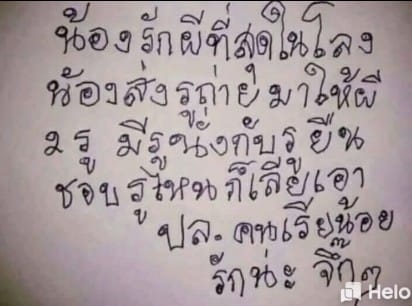 น้องรักผีที่สุดในโลง
น้องส่งรูถ่ายมาให้ผี
2 รู มีรูนั่งกับรูยืน
ชอบรูไหนก็เลียเอา
ปล. คนเรียน้อย
รักน่ะ จึ๊กๆ
Helo